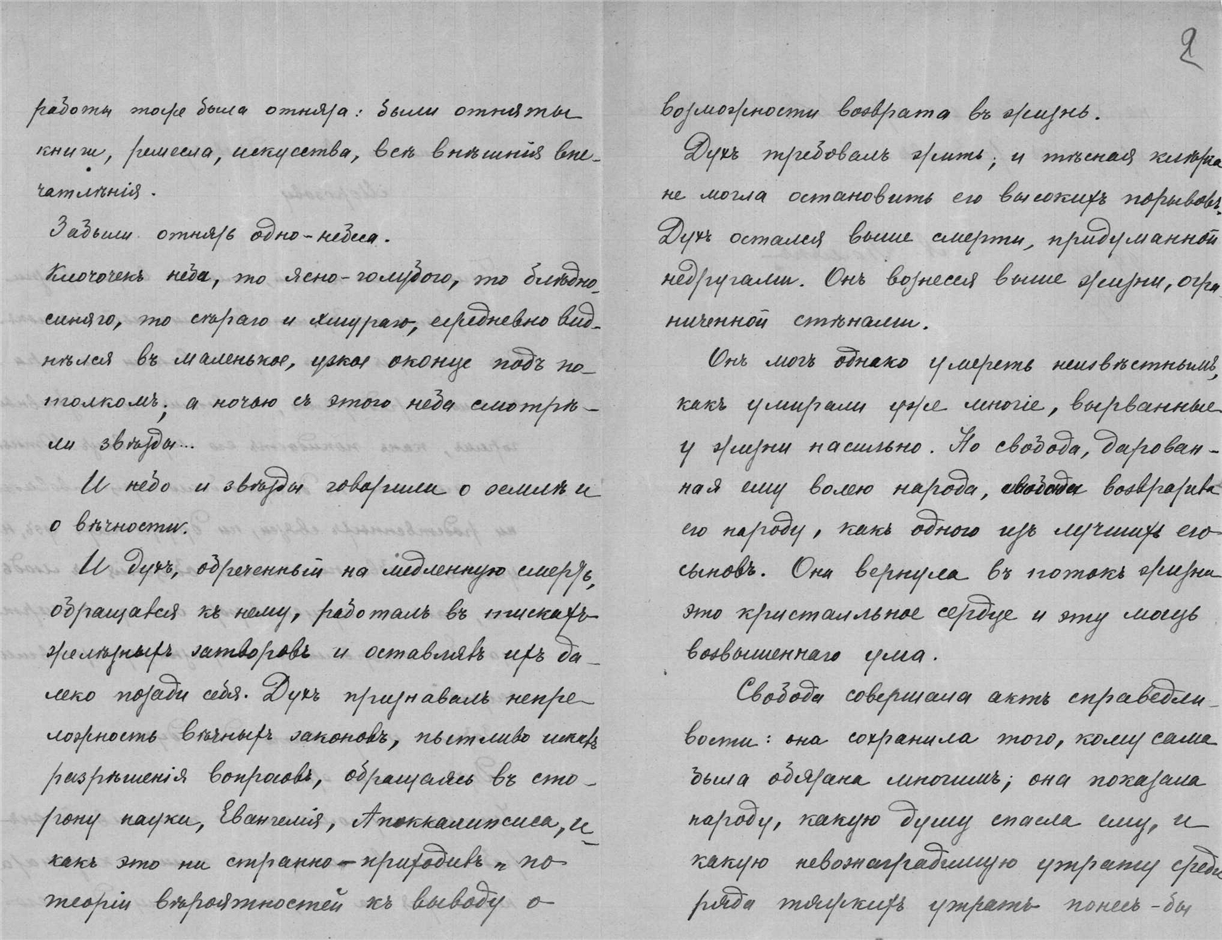 2
работы тоже была отнята: были отняты
книги, ремесла, искусства, всѣ внѣшнія впе-
чатлѣнія.
Забыли отнять одно-небеса.
Клочочекъ неба, то ясно-голубого, то блѣдно-
синяго, то сѣраго и хмураго, ежедневно вид-
нѣлся въ маленькое, узкое оконце подъ по-
толкомъ; а ночью съ этого неба смотрѣ-
ли звѣзды...
И небо и звѣзды говорили о землѣ и
о вѣчности.
И духъ, обреченный на медленную смерть,
обращался къ нему, работалъ въ тискахъ
желѣзныхъ затворовъ и оставлялъ ихъ да-
леко позади себя. Духъ признавалъ непре-
ложность вѣчныхъ законовъ, пытливо искалъ
разрѣшенія вопросовъ, обращаясь въ сто-
рону науки, Евангелія, Апоккалипсиса, и
какъ это ни странно-приходилъ „по
теоріи вѣроятностей къ выводу о
возможности возврата въ жизнь.
Духъ требовалъ жить; и тѣсная клѣтка
не могла остановить его высокихъ порывовъ.
Духъ остался выше смерти, придуманной
недругами. Онъ вознесся выше жизни, огра
ниченной стѣнами.
Онъ могъ однако умереть неизвѣстнымъ,
какъ умирали уже многіе, вырванные
у жизни насильно. Но свобода, дарован-
ная ему волею народа, свобода возвратила
его народу, какъ одного изъ лучшихъ его
сыновъ. Она вернула въ потокъ жизни
это кристальное сердце и эту мощь
возвышеннаго ума.
Свобода совершила актъ справедли-
вости: она сохранила того, кому сама
была обязана многимъ; она показала
народу, какую душу спасла ему, и
какую невознаградимую утрату среди
ряда тяжкихъ утратъ понесъ-бы